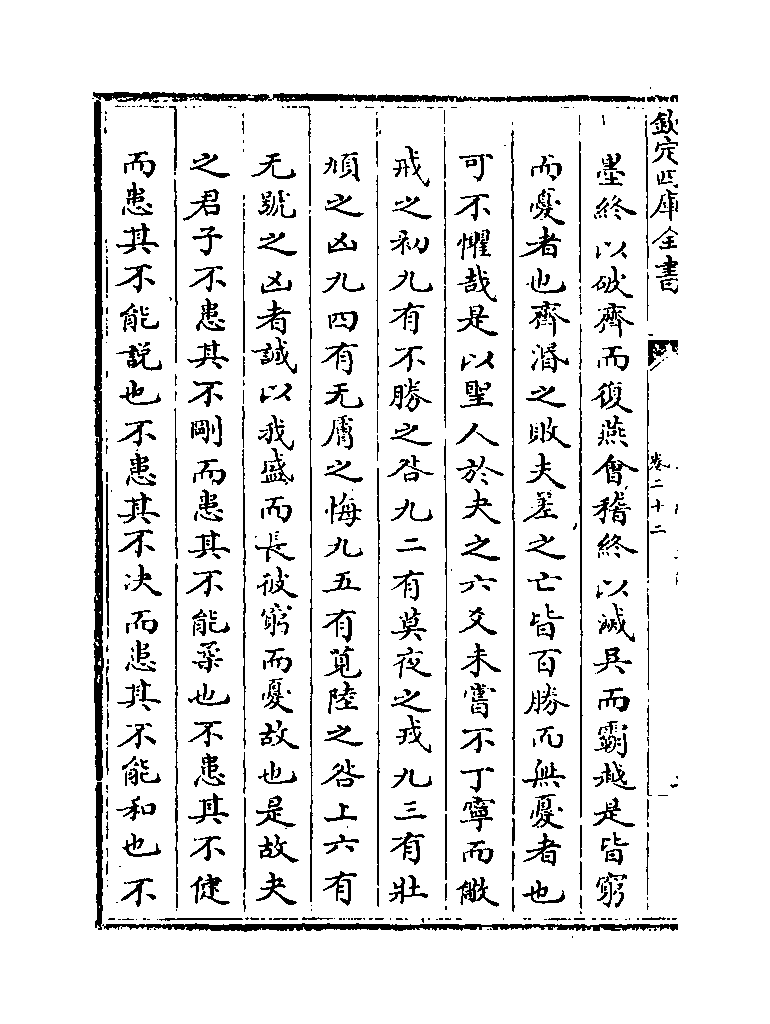 欽定四庫全書
卷二十二
墨終以破齊而復燕會稽終以滅吳而霸越是皆窮
而憂者也齊湣之敗夫差之亡皆百勝而無憂者也
可不懼哉是以聖人於夬之六爻未嘗不丁寧而儆
戒之初九有不勝之咎九二有莫夜之戎九三有壯
頄之凶九四有无膚之悔九五有莧陸之咎上六有
无號之凶者誠以我盛而長彼窮而憂故也是故夬
之君子不患其不剛而患其不能柔也不患其不健
而患其不能說也不患其不决而患其不能和也不